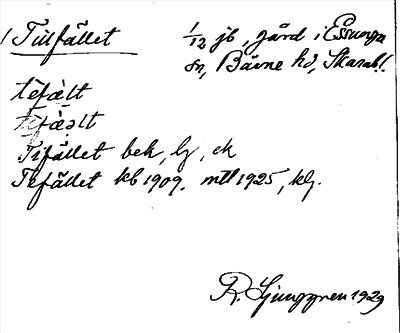 1 Tilfället 1/12 jb, gård i Essunga
sn, Bärne hd, Skarab.l.
tèfæ̀lt
tefæ̀əlt
Tifället bek, lj, ek
Tefället kb 1909, mtl 1925, klj.
R. Ljunggren 1929